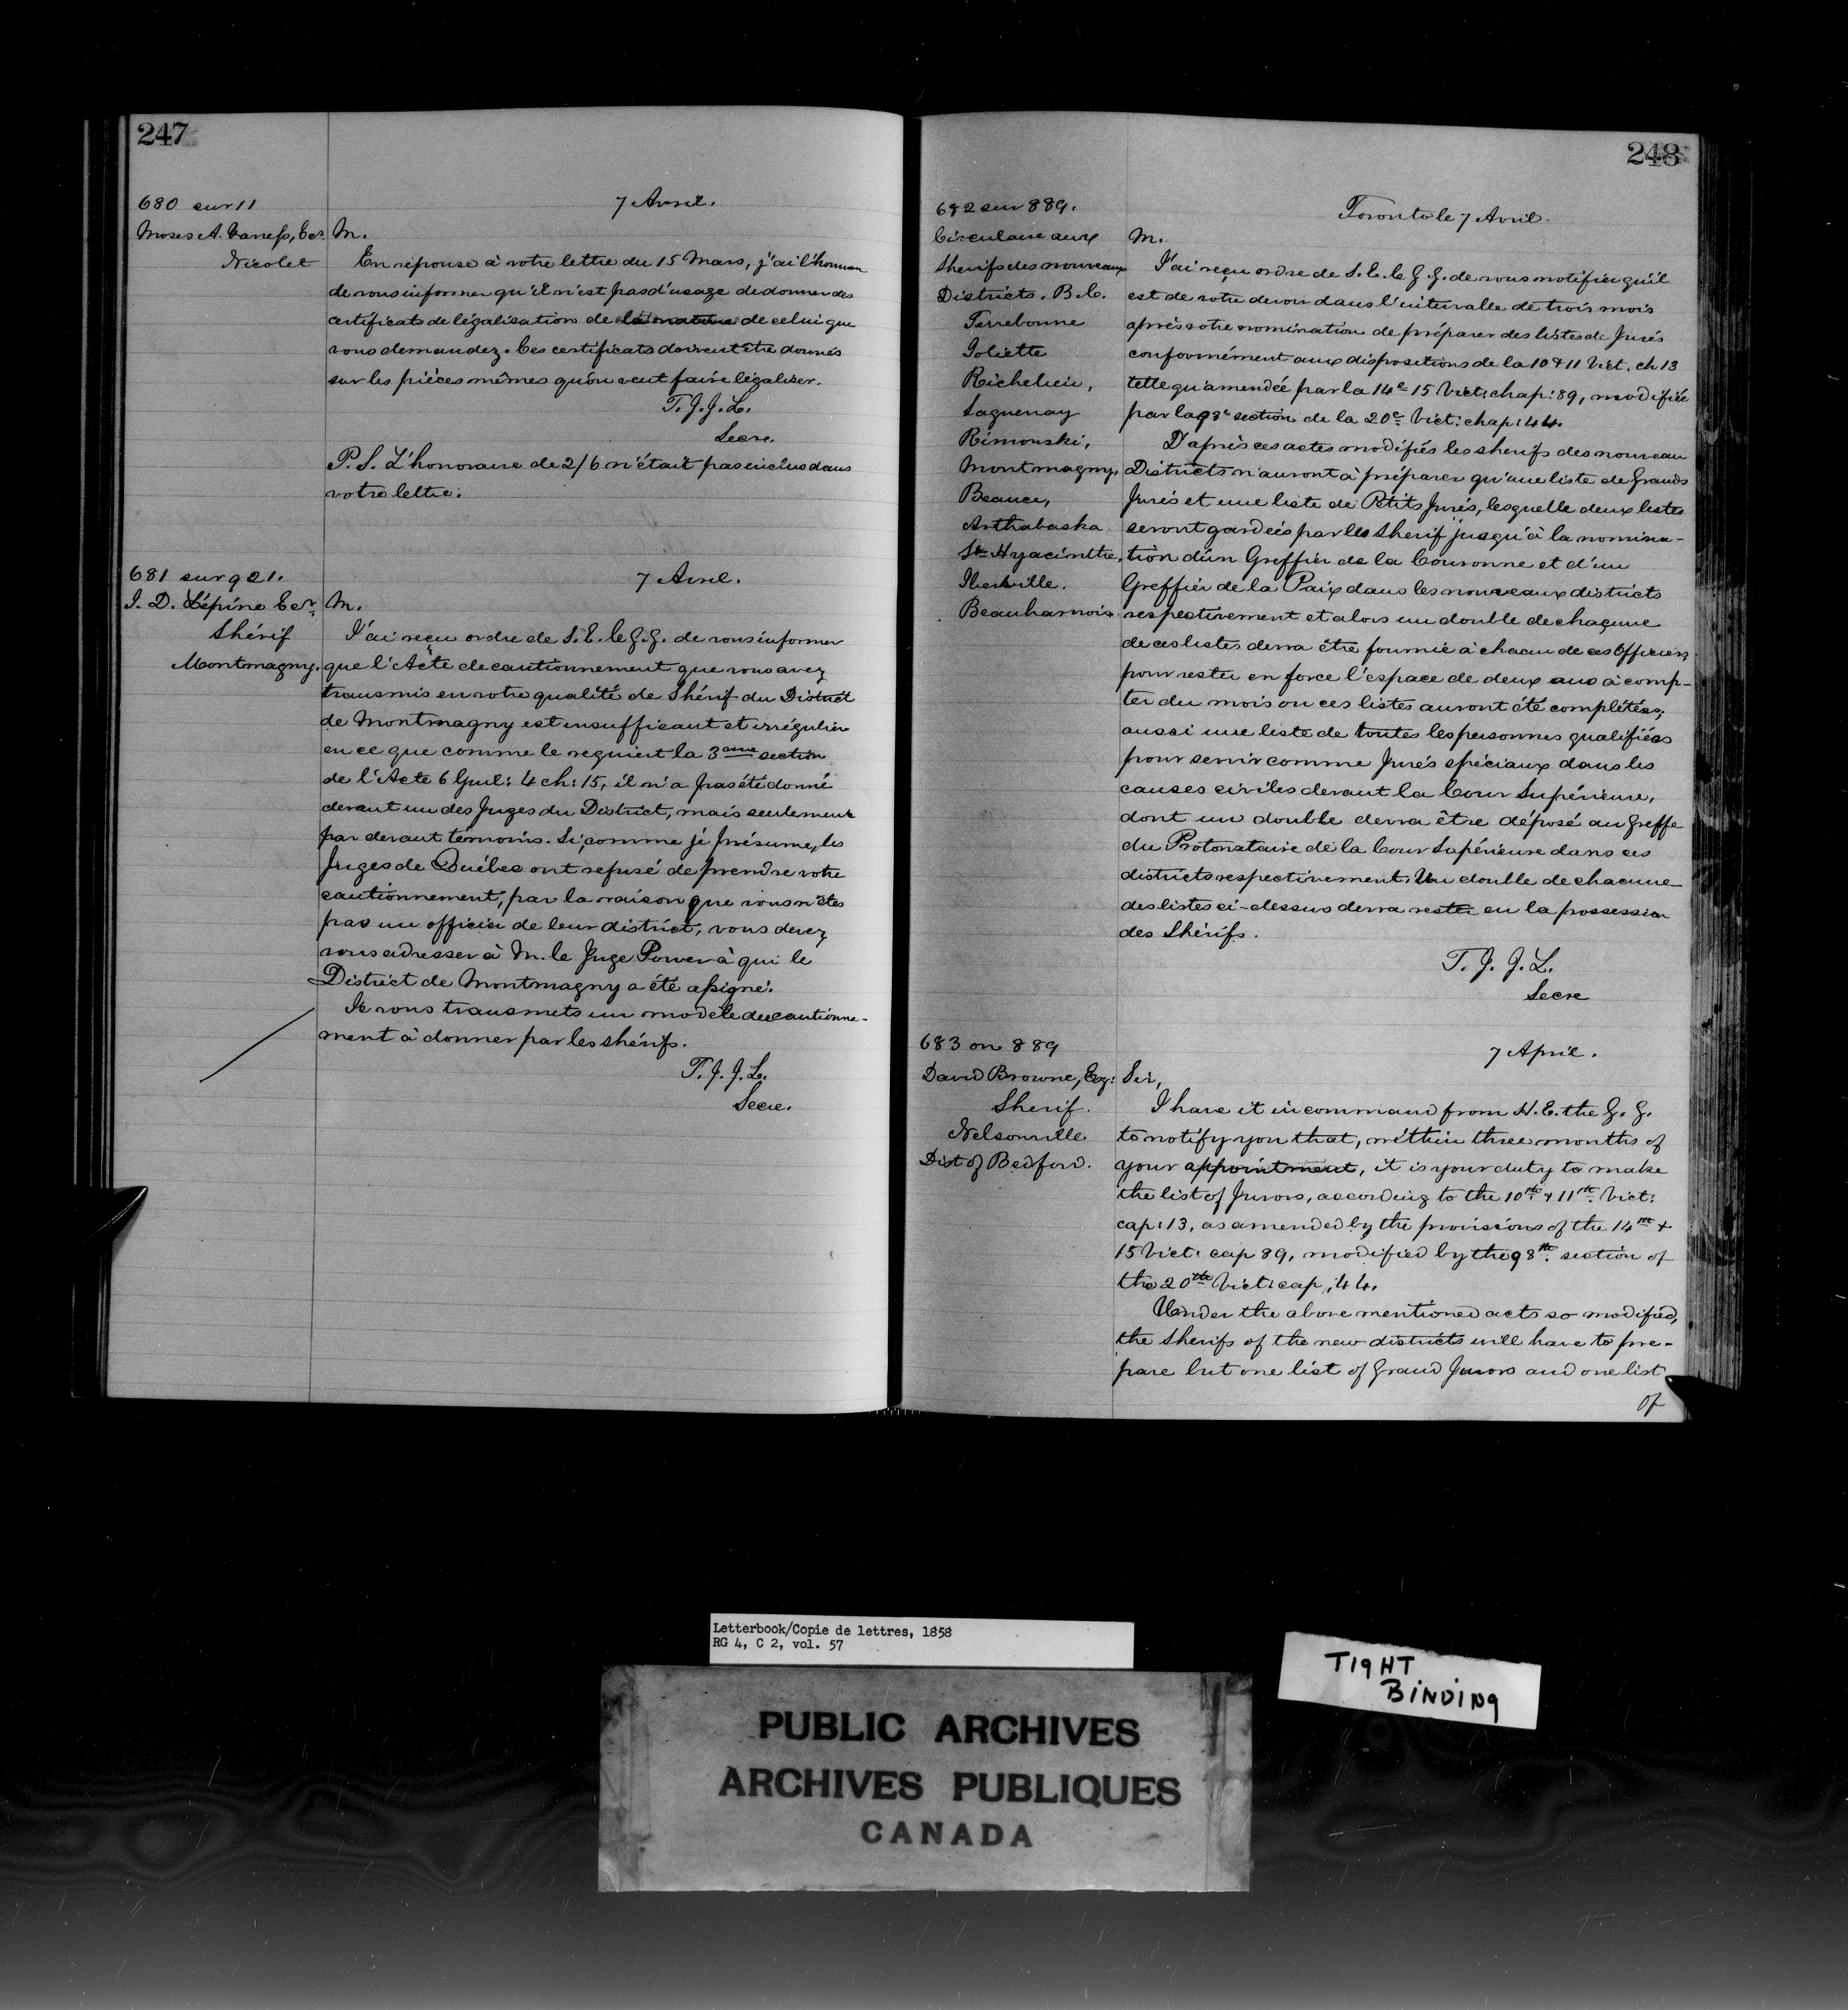 247
680 sur 11
7 Avril.
Moses A. Haness, Ecr. M.
Nicolet
En réponse à votre lettre du 15 Mars, j'ai l'honneur
de vous informer qu'il n'est pas d'usage de donner des
certificats de légalisation de la nature de celui que
vous demandez. Ces certificats doivent être donnés
sur les pièces mêmes qu'on veut faire légaliser.
T. J. J. L.
Secre.
P. S. L'honoraire de 2/6 n'était pas inclus dans
votre lettre.
681 sur 921.
7 Avril.
J. D. Lépine Ecr. M.
Shérif
Montmagny.
J'ai reçu ordre de S. E. le G. G. de vous informer
que l'Acte de cautionnement que vous avez
transmis en votre qualité de Shérif du District
de Montmagny est insuffisant et irrégulier
en ce que comme le requiert la 3eme section
de l'Acte 6 Gul: 4 ch: 15, il n'a pas été donné
devant un des Juges du District, mais seulement
par devant témoins. Si, comme je présume, les
Juges de Québec ont refusé de prendre votre
cautionnement, par la raison que vous n'êtes
pas un officier de leur district, vous devez
vous adresser à M. le Juge Power à qui le
District de Montmagny a été assigné.
Je vous transmets un modèle de cautionne-
ment à donner par les shérifs.
T. J. J. L.
Secre.
248
682 sur 889.
Toronto le 7 Avril.
Circulaire aux
sherifs des nouveaux
Districts. B. C.
Terrebonne
Joliette
Richelieu,
Saguenay
Rimouski,
Montmagny,
Beauce,
Arthabaska
St Hyacinthe,
Iberville.
Beauharnois
M.
J'ai reçu ordre de S. E. le G. G. de vous notifier qu'il
est de votre devoir dans l'intervalle de trois mois
après votre nomination de préparer des listes de Jurés
conformément aux dispositions de la 10 & 11 Vict. ch 13
telle qu'amendée par la 14e 15 Vict: chap: 89, modifiée
par la 98e section de la 20e Vict: chap: 44.
D'après ces actes modifiés les sherifs des nouveau
Districts n'auront à préparer qu'une liste de Grands
Jurés et une liste de Petits Jurés, lesquelle deux listes
seront gardées par les Sherif jusqu'à la nomina-
tion d'un Greffier de la Couronne et d'un
Greffier de la Paix dans les nouveaux districts
respectivement et alors un double de chaqune
de ces listes devra être fournie à chacun de ces Officiers
pour rester en force l'espace de deux ans à comp-
ter du mois ou ces listes auront été complétées;
aussi une liste de toutes les personnes qualifiées
pour servir comme Jurés spéciaux dans les
causes civiles devant la Cour Supérieure,
dont un double devra être déposé au Greffe
du Protonotaire de la Cour Supérieure dans ces
districts respectivement. Un double de chacune
des listes ci-dessus devra rester en la possession
des Shérifs.
T. J. J. L.
Secre
683 on 889
7 April.
David Browne, Esq: Sir,
Sherif.
Nelsonville
Dist of Bedford.
I have it in command from H. E. the G. G.
to notify you that, within three months of
your appointment, it is your duty to make
the list of Jurors, according to the 10th & 11th Vict:
cap: 13, as amended by the provisions of the 14th &
15 Vict: cap 89, modified by the 98th section of
the 20th Vict: cap; 44.
Under the above mentioned acts so modified,
the sherifs of the new districts will have to pre-
pare but one list of Grand Jurors and one list
of
Letterbook/Copie de lettres, 1858
RG 4, C 2, vol. 57
TIGHT
BINDING
PUBLIC ARCHIVES
ARCHIVES PUBLIQUES
CANADA